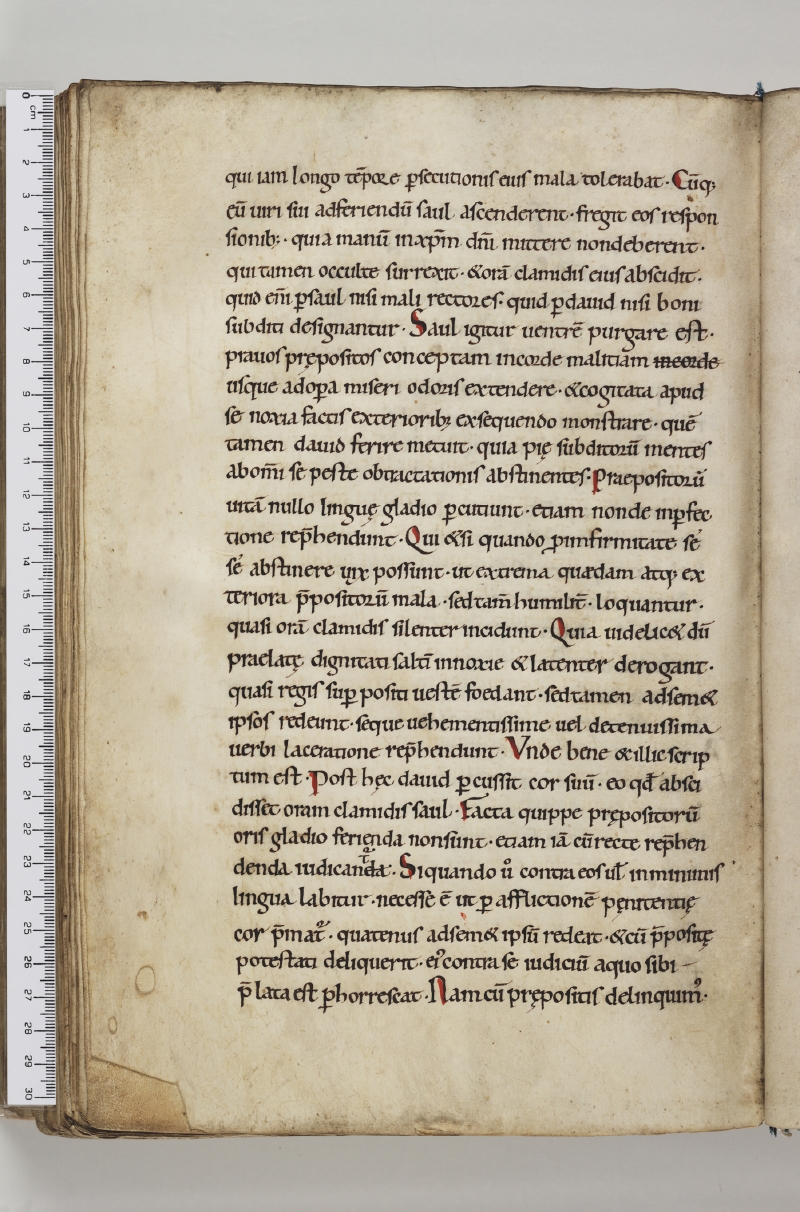 qui iam longo tēpore ꝑsecutionis eius mala tolerabat · Cūq;
eū uiri sui adferiendū saul ascenderent · fregit eos respon
sionib; · quia manū inxp̄m dn̄i mittere nondeberent ·
qui tamen occulte surrexit · &orā clamidis eius abscidit ·
quid em̄ ꝑsaul nisi mali rectores · quid ꝑdauid nisi boni
subditi designantur · Saul igitur uentrē purgare est ·
prauos prępositos conceptam incorde malitiam incorde
usque adopa miseri odoris extendere · &cogitata apud
se noxia factis exteriorib; exsequendo monstrare · quē
tamen dauid ferire metuit · quia pię subditorū mentes
abom̄i se peste obtractationis abstinentes · Praepositorū
uitā nullo linguę gladio ꝑcutiunt · etiam nonde inꝑfec
tione rep̄hendunt · Qui &si quando ꝓinfirmitate se
se abstinere uix possunt · ut extrema quaedam atq; ex
teriora p̄positorū mala · sedtam̄ humilit̄ · loquantur ·
quasi orā clamidis silenter incidunt · Quia uidelic& dū
praelatę dignitati saltī innoxie &latenter derogant ·
quasi regis suꝑ positi uestē foedant · sedtamen adsem&
ipsos redeunt · seque uehementissime uel detenuissima
uerbi laceratione rep̄hendunt · Vnde bene &illic scrip
tum est · Post hęc dauid ꝑcussit cor suū · eo qd̄ absci
disset oram clamidis saul · Facta quippe prępositorū
oris gladio ferienda nonsunt · etiam iā cū recte rep̄hen
denda iudicant̄da · Siquando ů contra eos ul̄ inminimis
lingua labitur · necesse ē ut ꝑ afflictionē pęnitentię
cor p̄mat᷑ · quatenus adsem& ipsū redeat · &cū p̄positę
potestati deliquerit · eiꝰ contra se iudiciū aquo sibi
p̄ lata est ꝑhorrescat · Nam cū prępositis delinquimꝰ ·